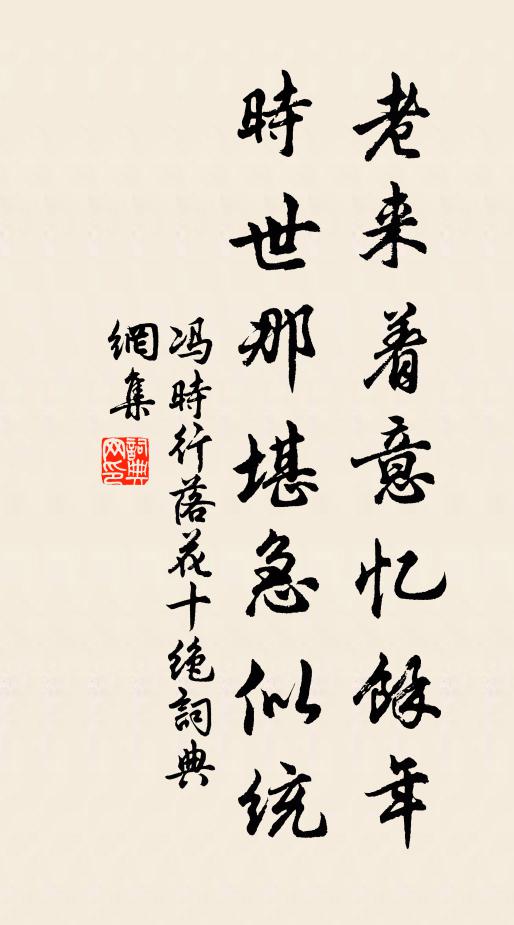 老来着意忆餘年
時世那堪急似统
冯時行落花十绝詞典
網集
詞典网印